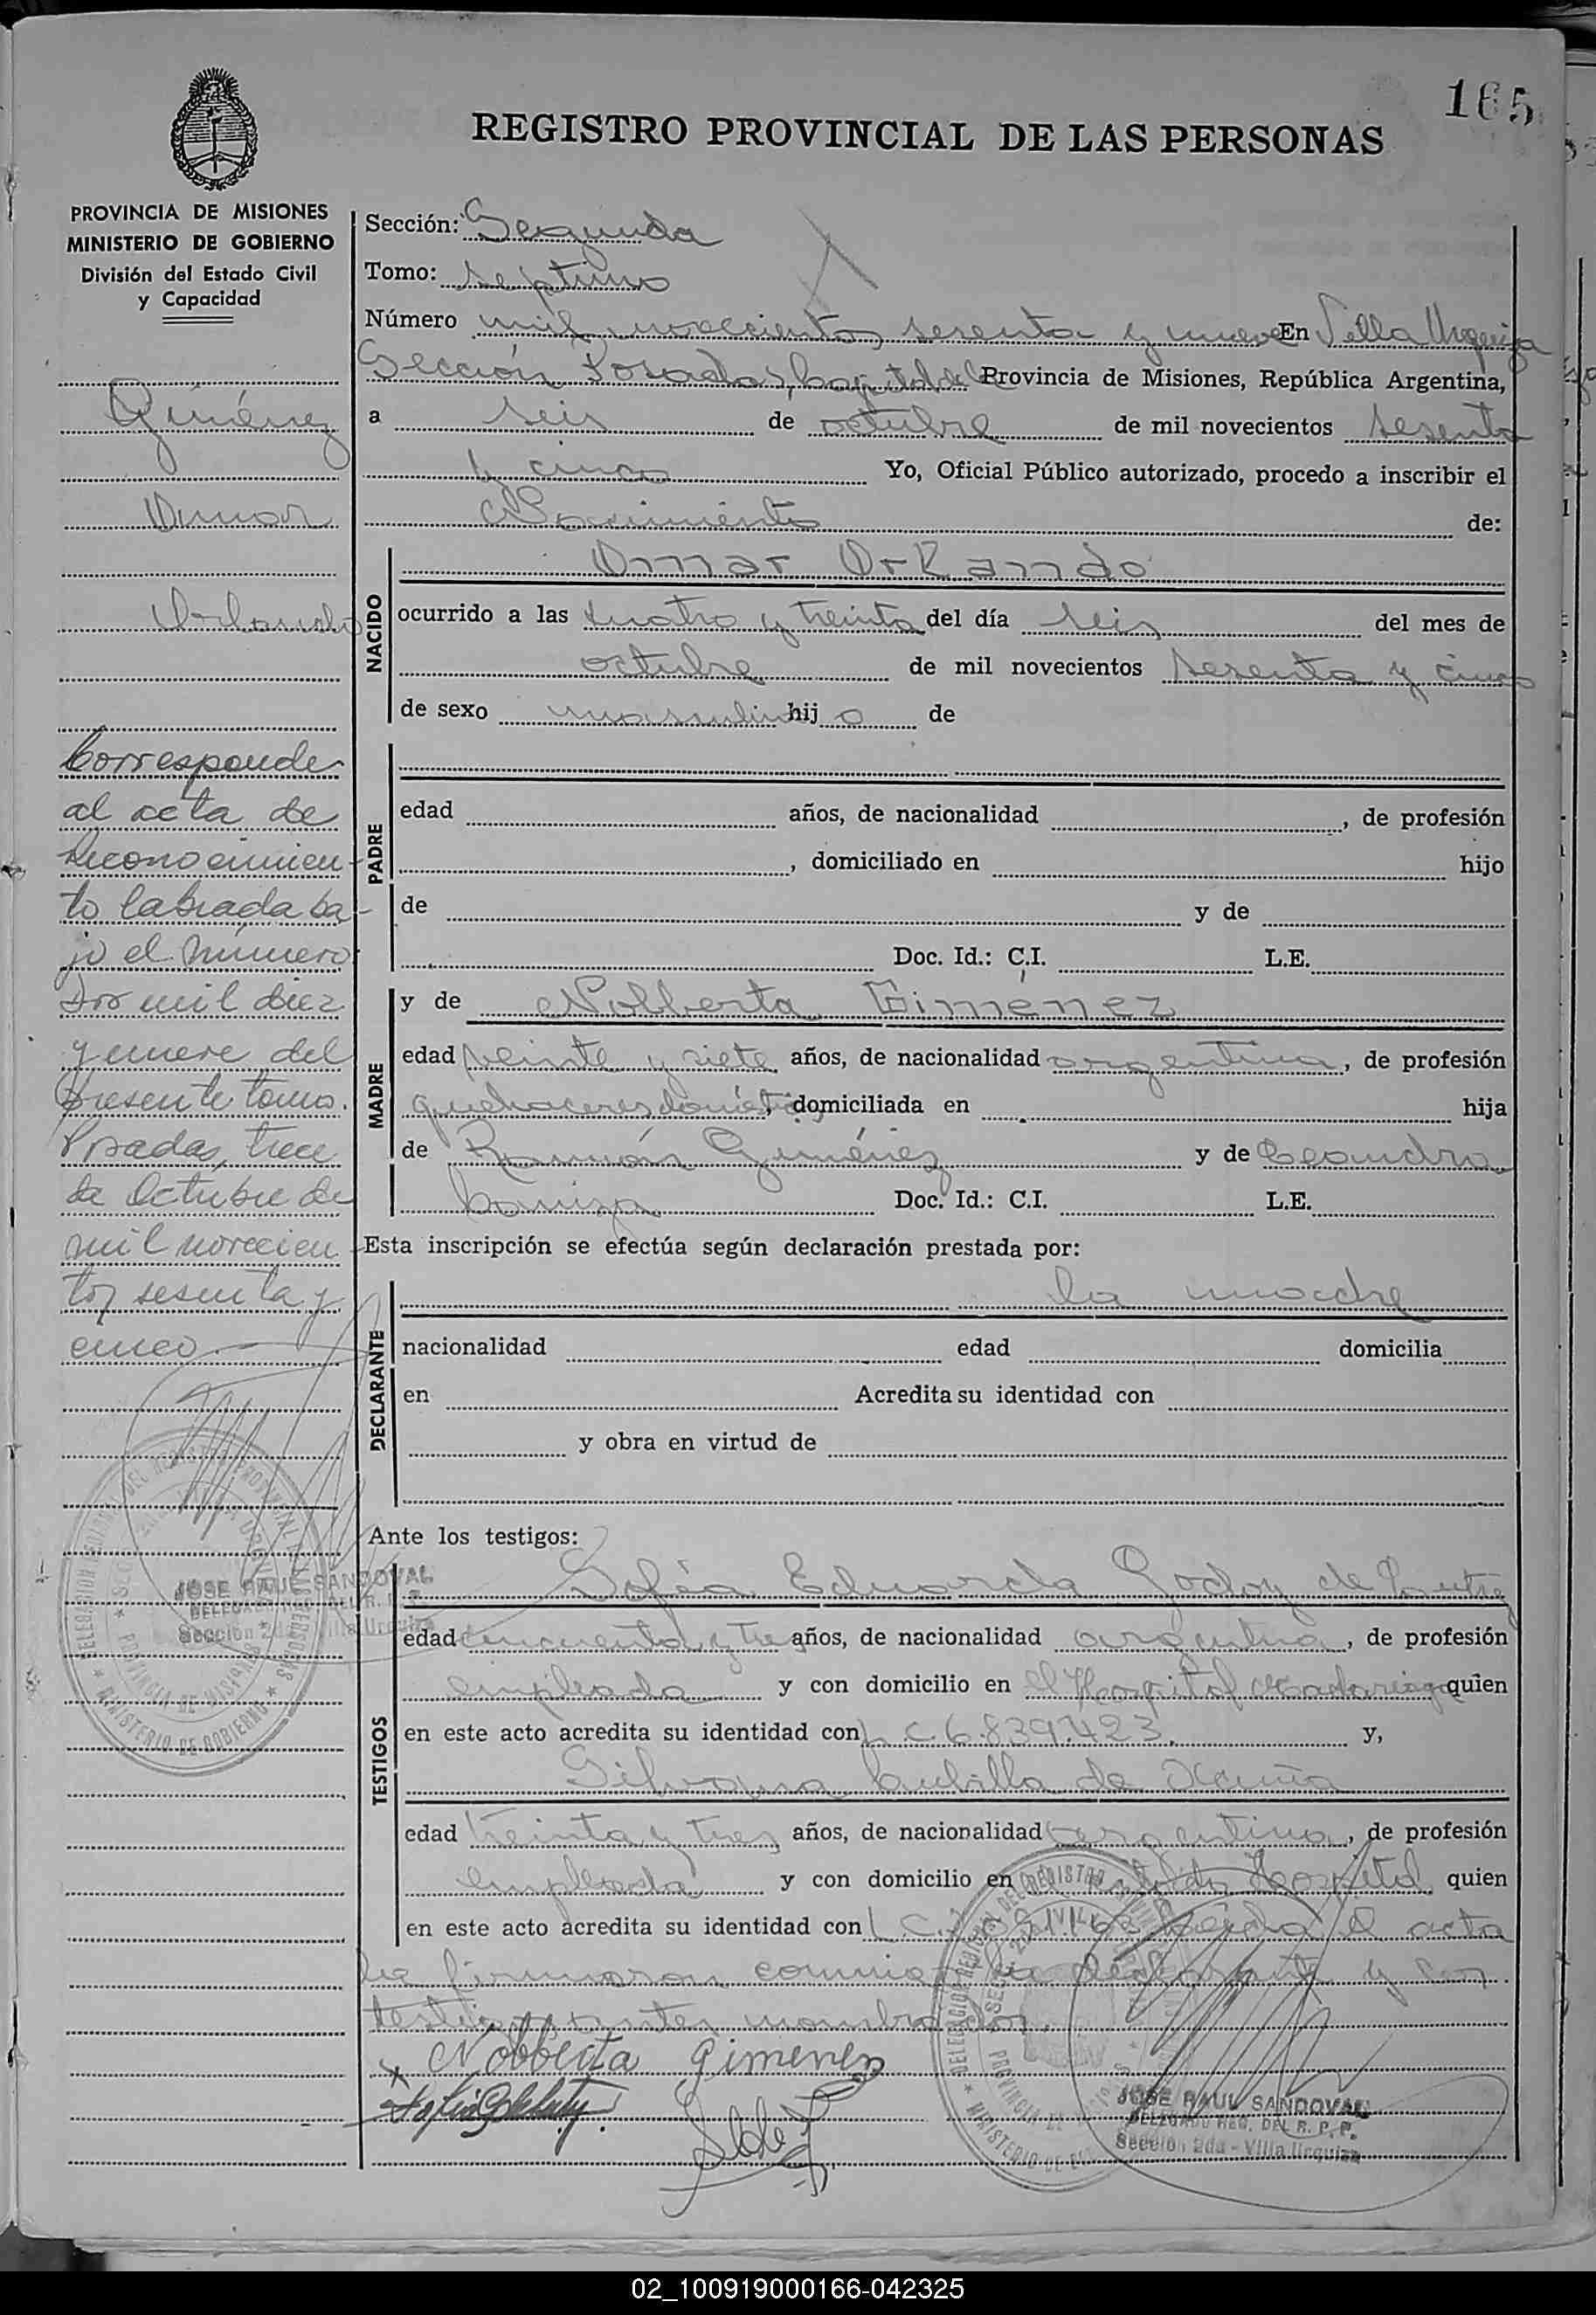 165
REGISTRO PROVINCIAL DE LAS PERSONAS
PROVINCIA DE MISIONES
MINISTERIO DE GOBIERNO
División del Estado Civil
y Capacidad
Giménez
Omar
Orlando
Corresponde
al acta de
Reconocimien-
to labrada ba-
jo el número
dos mil diez
y nueve del
presente tomo.
Posadas, trece
de Octubre de
mil novecien-
tos sesenta y
cinco.
Sección: Segunda
Tomo: Septimo
Número mil novecientos sesenta y nueve En Villa Urquiza
Sección Posadas, Capital de la Provincia de Misiones, República Argentina,
a seis de octubre de mil novecientos sesenta
y cinco Yo, Oficial Público autorizado, procedo a inscribir el
Nacimiento de:
NACIDO
Omar Orlando
ocurrido a las cuatro y treinta del día seis del mes de
octubre de mil novecientos sesenta y cinco
de sexo masculino hijo de
PADRE
edad años, de nacionalidad , de profesión
, domiciliado en hijo
de y de
Doc. Id.: C.I. L.E.
MADRE
y de Nolberta Giménez
edad veinte y siete años, de nacionalidad argentina, de profesión
quehaceres domésticos, domiciliada en hija
de Ramón Giménez y de Leandra
Doc. Id.: C.I. L.E.
Esta inscripción se efectúa según declaración prestada por:
DECLARANTE
la madre
nacionalidad edad domicilia
en Acredita su identidad con
y obra en virtud de
Ante los testigos:
TESTIGOS
Sofía Eduarda Godoy de
edad cincuenta y tres años, de nacionalidad argentina, de profesión
empleada y con domicilio en el Hospital Madariaga quien
en este acto acredita su identidad con L.C. 6.839.423. y,
Silvana Cubilla de Acuña
edad treinta y tres años, de nacionalidad argentina, de profesión
empleada y con domicilio en Hospital quien
en este acto acredita su identidad con L.C. Leída el acta
la firmaron conmigo la declarante y los
testigos antes nombrados.
x Nobberta Gimenez
JOSE RAUL SANDOVAL
DELEGADO REG. DEL R. P. P.
Sección 2da - Villa Urquiza
JOSE RAUL SANDOVAL
DELEGADO REG. DEL R. P. P.
Sección 2da - Villa Urquiza
02_100919000166-042325